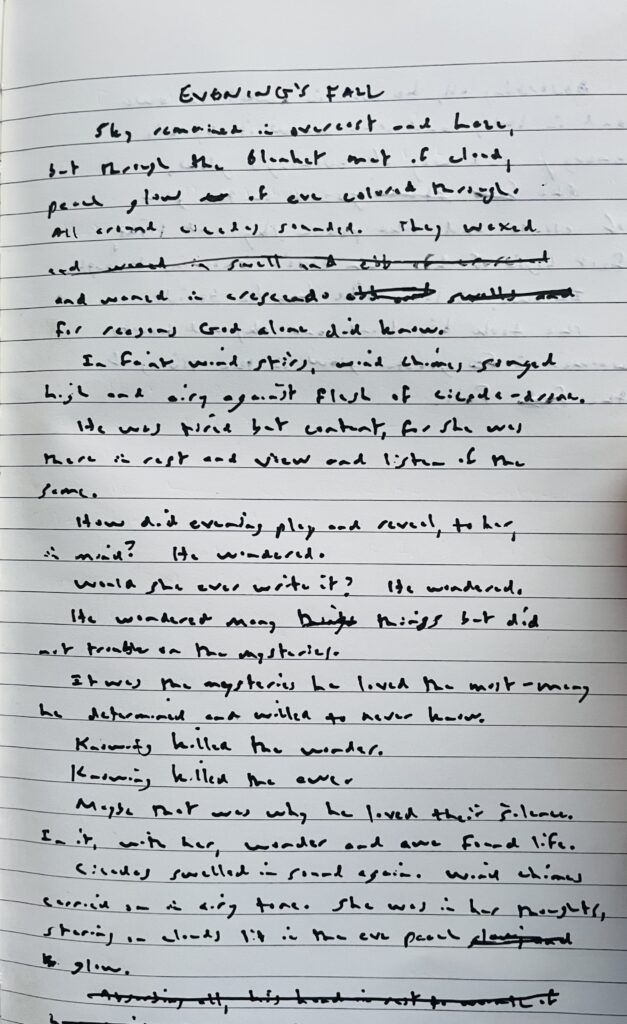 EVENING'S FALL
Sky remained in overcast and haze,
but through the blanket mat of cloud,
peach glow of eve colored through.
All around, cicadas sounded. They waxed
and waned in swell and ebb of crescend
and waned in crescendo ebb and swells and
for reasons God alone did know.
In faint wind stirs, wind chimes songed
high and airy against flesh of cicada-drone.
He was tired but content, for she was
there in rest and view and listen of the
same.
How did evening play and reveal, to her,
in mind? He wondered.
Would she ever write it? He wondered.
He wondered many things but did
not trouble on the mysteries.
It was the mysteries he loved the most-many
he determined and willed to never know.
Knowing killed the wonder.
Knowing killed the awe.
Maybe that was why he loved their silence.
In it, with her, wonder and awe found life.
Cicadas swelled in sound again. Wind chimes
carried on in airy tone. She was in her thoughts,
staring on clouds lit in the eve peach
glow.
Absorbing all, his head in rest to of